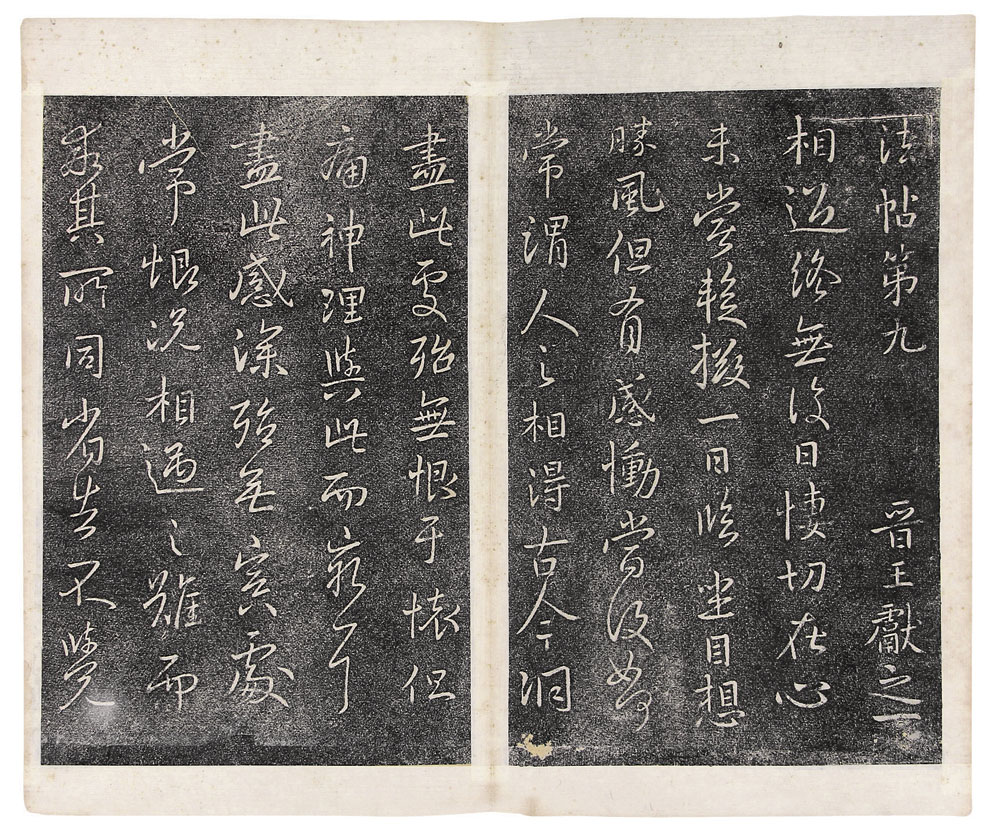 法帖第九 晉王獻之一
相過終無復日悽切在心
未嘗暫掇一日臨坐目想
勝風但有感慟當復如何
常謂人之相得古今洞
盡此處殆無恨于懷但
痛神理與此而窮耳
盡此感深殆無冥處
常恨況相遇之難而
乖其所同省告不覺